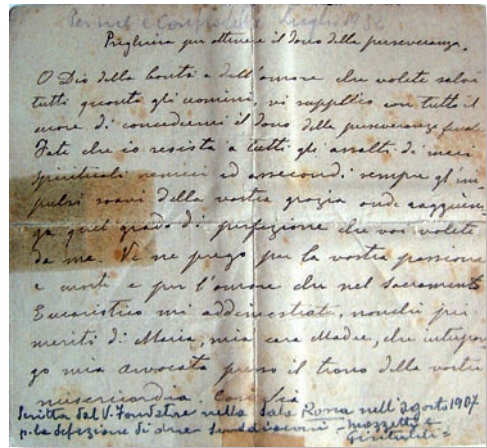 Luglio 1932
Preghiera per ottenere il dono della perseveranza.
O Dio della bontà e dell'amore che volete salvi
tutti quanti gli uomini, vi supplico con tutto il
cuore di concedermi il dono della perseveranza finale
Fate che io resista a tutti gli assalti di miei
spirituali nemici ed assecondi sempre gl'im-
pulsi soavi della vostra grazia onde raggiun-
ga quel grado di perfezione che voi volete
da me. Ve ne prego per la vostra passione
e morte e per l'amore che nel Sacramento
Eucaristico mi addimostrate, nonchè pei
meriti di Maria, mia cara Madre, che interpon-
go mia avvocata presso il trono della vostra
misericordia. Così sia
Scritta dal V. Fondatore nella sala Roma nell'agosto 1907
p. la defezione di due Mozzetti e